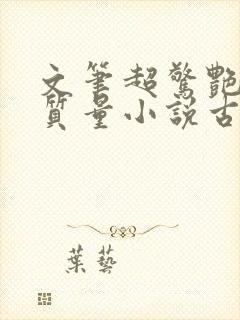 文筆超驚艷
質量小説古
葉藝